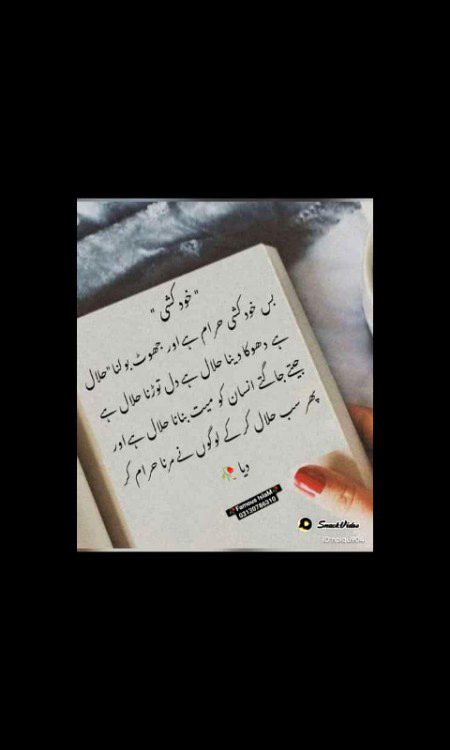 "خودکشی"
بس خودکشی حرام ہے اور جھوٹ بولنا "حلال
ہے دھوکا دینا حلال ہے دل توڑنا حلال ہے
جیتے جاگتے انسان کو میت بنانا حلال ہے اور
پھر سب حلال کر کے لوگوں نے مرنا حرام کر
دیا 🥀
Famous IslaM
03130786310
SnackVideo